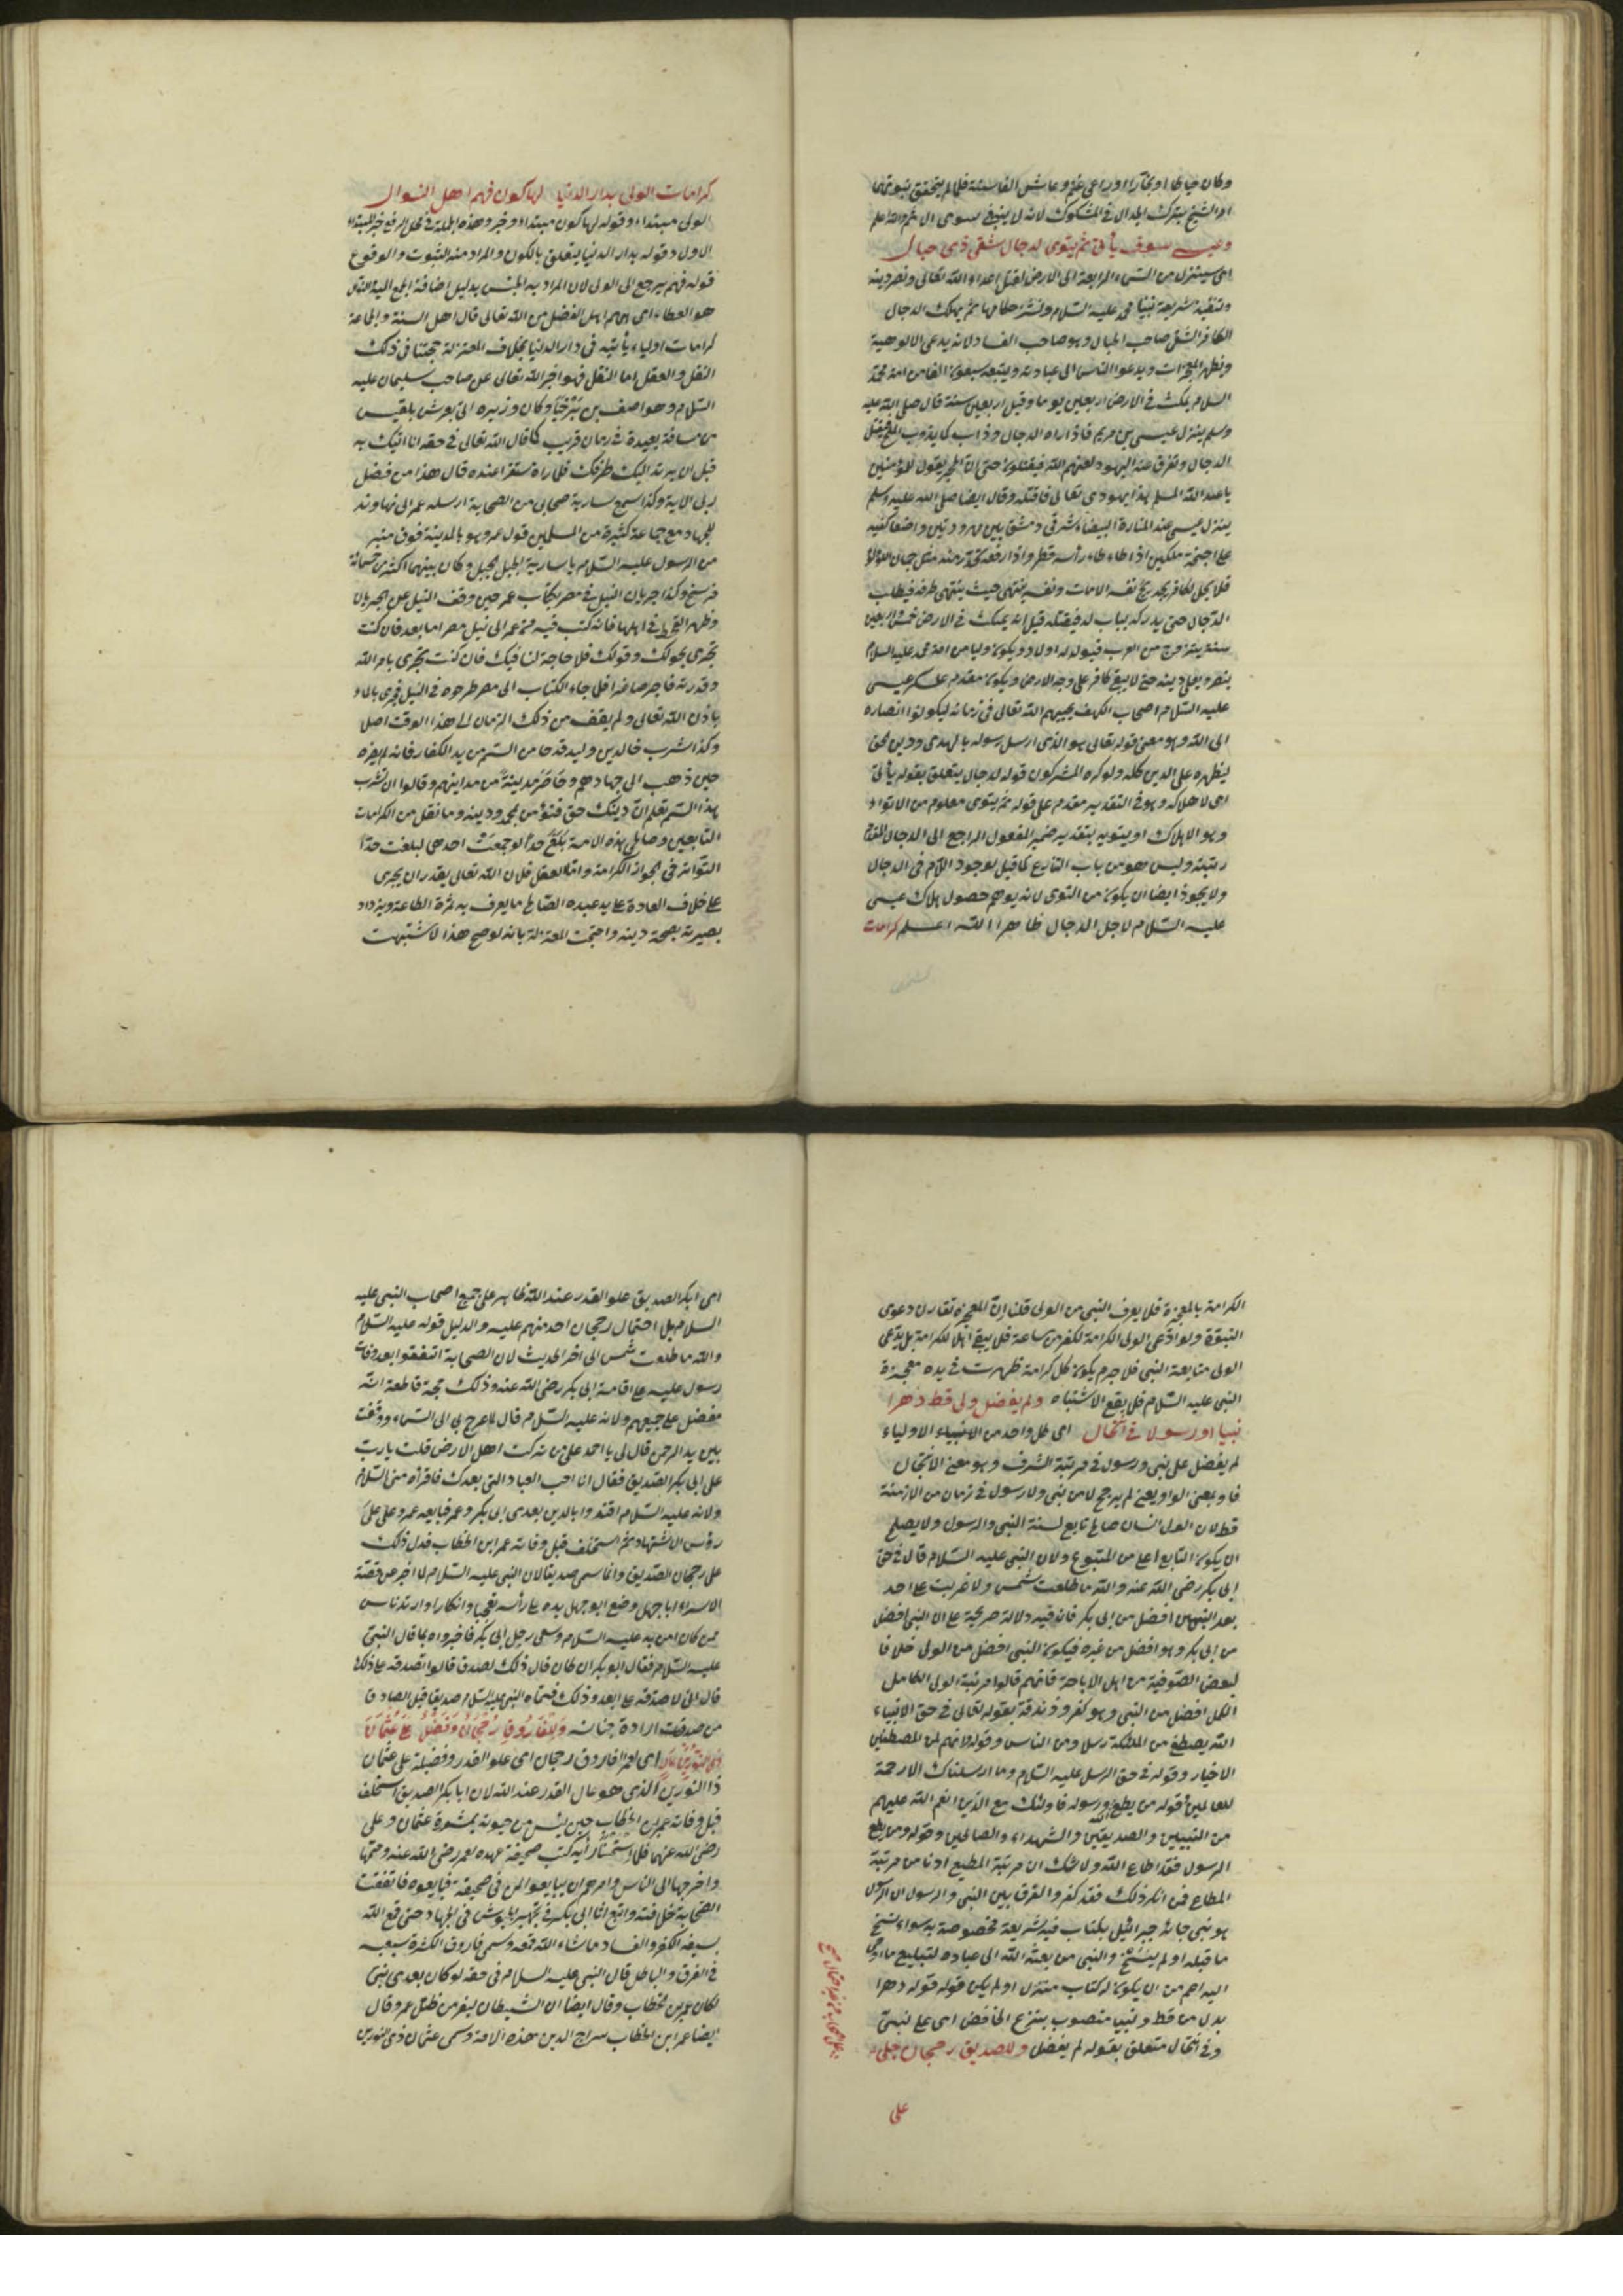 وكان خياطا او نجارا او راعى غنم وعاش الفا سنة فلما لم يتحقق نبوتهما
امر الشيخ بترك الجدال فى المشكوك لانه لا ينبغى سوى ان ثم والله اعلم
وعيسى سوف يأتى ثم يتوى لدجال شقى ذى خبال
اى سينزل من السماء الرابعة الى الارض لقتل اعداء الله تعالى ونصر دينه
وتنفيذ شريعة نبينا محمد عليه السلام ونشر احكامها ثم يهلك الدجال
الكافر الشقى صاحب الخبال وهو صاحب الفساد لانه يدعى الالوهية
ويظهر المعجزات ويدعو الناس الى عبادته ويتبعه سبعون الفا من امة محمد
السلام يمكث فى الارض اربعين يوما وقيل اربعين سنة قال صلى الله عليه
وسلم ينزل عيسى بن مريم فاذا راه الدجال ذاب كما يذوب الملح فيقتل
الدجال وتفرق عنه اليهود لعنهم الله فيقتلون حتى ان الحجر يقول للمؤمنين
يا عبد الله المسلم هذا يهودى تعالى فاقتله وقال ايضا صلى الله عليه وسلم
ينزل عيسى عند المنارة البيضاء شرقى دمشق بين مهرودتين واضعا كفيه
على اجنحة ملكين اذا طاطاء رأسه قطر واذا رفعه تحدر منه مثل جمان اللؤلؤ
فلا يحل لكافر يجد ريح نفسه الا مات ونفسه ينتهى حيث ينتهى طرفه فيطلب
الدجال حتى يدركه بباب لد فيقتله قيل انه يمكث فى الارض خمس واربعين
سنة يتزوج من العرب فيولد له اولاد ويكون وليا من امة محمد عليه السلام
ينصر ويعلى دينه حتى لا يبقى كافر على وجه الارض ويكون مقدم عسكر عيسى
عليه السلام اصحاب الكهف يحييهم الله تعالى فى زمانه ليكونوا انصاره
الى الله وهو معنى قوله تعالى هو الذى ارسل رسوله بالهدى ودين الحق
ليظهره على الدين كله ولو كره المشركون قوله لدجال يتعلق بقوله يأتى
اى لاهلاكه وهو فى التقدير مقدم على قوله ثم يتوى معلوم من الاتواء
وهو الاهلاك او يتويه بتقدير ضمير المفعول الراجع الى الدجال المقدم
رتبته وليس هو من باب التنازع كما قيل لوجود اللام فى الدجال
ولا يجوز ايضا ان يكون من التوى لانه يوهم حصول هلاك عيسى
عليه السلام لاجل الدجال ظاهرا الله اعلم كرامات
كرامات الولى بدار الدنيا لها كون فهم اهل النوال
الولى مبتداء وقوله لها كون مبتداء وخبر وهذه الجملة فى محل الرفع خبر للمبتداء
الاول وقوله بدار الدنيا يتعلق بالكون والمراد منه الثبوت والوقوع
قوله فهم يرجع الى الولى لان المراد به الجنس بدليل اضافة الجمع اليه النوال
هو العطاء اى انهم اهل الفضل من الله تعالى قال اهل السنة والجماعة
كرامات اولياء ثابتة فى دار الدنيا بخلاف المعتزلة حجتنا فى ذلك
النقل والعقل اما النقل فهو اخبر الله تعالى عن صاحب سليمان عليه
السلام وهو اصف بن برخيا وكان وزيره اتى بعرش بلقيس
من مسافة بعيدة فى زمان قريب كما قال الله تعالى فى حقه انا اتيك به
قبل ان يرتد اليك طرفك فلما راه مستقرا عنده قال هذا من فضل
ربى الاية وكذا سمع سارية صحابى من الصحابة ارسله عمر الى نهاوند
للجهاد مع جماعة كثيرة من المسلمين قول عمر وهو بالمدينة فوق منبر
من الرسول عليه السلام يا سارية الجبل الجبل وكان بينهما اكثر من خمسمائة
فرسخ وكذا جريان النيل فى مصر بكتاب عمر حين وقف النيل عن الجريان
وظهر القحط فى اهلها فانه كتب فيه من عمر الى نيل مصر اما بعد فان كنت
تجرى بحولك وقوتك فلا حاجة لنا فيك فان كنت تجرى بامر الله
وقدرته فاجر صاغرا فلما جاء الكتاب الى مصر طرحوه فى النيل فجرى بالماء
باذن الله تعالى ولم يقف من ذلك الزمان الى هذا الوقت اصلا
وكذا شرب خالد بن وليد قدحا من السم من يد الكفار فانه لم يضره
حين ذهب الى جهادهم وحاصر مدينة من مداينهم وقالوا ان تشرب
بهذا السم نعلم ان دينك حق فنؤمن بمحمد ودينه وما نقل من الكرامات
التابعين وصالحى هذه الامة بلغ حدا لو جمعت احدها لبلغت حد
التواتر فى جواز الكرامة واما العقل فلان الله تعالى يقدر ان يجرى
على خلاف العادة على يد عبده الصالح ما يعرف به ثمرة الطاعة ويزداد
بصيرته بصحة دينه واحتجت المعتزلة بانه لو صح هذا لاشتبهت
الكرامة بالمعجزة فلا يعرف النبى من الولى قلنا ان المعجزة تقارن دعوى
النبوة ولو ادعى الولى الكرامة لكفر من ساعة فلا يبقى اهلا للكرامة بل يدعى
الولى متابعة النبى فلا جرم يكون كل كرامة ظهرت فى يده معجزة
النبى عليه السلام فلا يقع الاشتباه ولم يفضل ولى قط دهرا
نبيا او رسولا فى انتحال اى كل واحد من الانبياء الاولياء
لم يفضل على نبى ورسول فى مرتبة الشرف وهو معنى الانتحال
فاو بمعنى الواو يعنى لم يرجح لا من نبى ولا رسول فى زمان من الازمنة
قط لان الولى انسان صالح تابع لسنة النبى والرسول ولا يصلح
ان يكون التابع اعلى من المتبوع ولان النبى عليه السلام قال فى حق
ابى بكر رضى الله عنه والله ما طلعت شمس ولا غربت على احد
بعد النبيين افضل من ابى بكر فان فيه دلالة صريحة على ان النبى افضل
من ابى بكر وهو افضل من غيره فيكون النبى افضل من الولى خلافا
لبعض الصوفية من اهل الاباحة فانهم قالوا مرتبة الولى الكامل
الكل افضل من النبى وهو كفر وزندقة بقوله تعالى فى حق الانبياء
الله يصطفى من الملئكة رسلا ومن الناس وقوله وانهم لمن المصطفين
الاخيار وقوله فى حق الرسل عليه السلام وما ارسلناك الا رحمة
للعالمين وقوله من يطع الله ورسوله فاولئك مع الذين انعم الله عليهم
من النبيين والصديقين والشهداء والصالحين وقوله ومن يطع
الرسول فقد اطاع الله ولا شك ان مرتبة المطيع ادنا من مرتبة
المطاع فمن انكر ذلك فقد كفر والفرق بين النبى والرسول ان الرسول
هو نبى جائه جبرائيل بكتاب فيه شريعة مخصوصة به سواء نسخ
ما قبله او لم ينسخ والنبى من بعثه الله الى عباده لتبليغ ما اوحى
اليه اعم من ان يكون له كتاب منزل او لم يكن قوله دهرا
بدل من قط ونبيا منصوب بنزع الخافض اى على نبى
وفى انتحال متعلق بقوله لم يفضل وللصديق رجحان جلى
على
اى ابكر الصديق علو القدر عند الله ظاهر على جميع اصحاب النبى عليه
السلام بلا احتمال رجحان احد منهم عليه والدليل قوله عليه السلام
والله ما طلعت شمس الى اخر الحديث لان الصحابة اتفقوا بعد وفات
رسول عليه على اقامة ابى بكر رضى الله عنه وذلك حجة قاطعة انه
مفضل على جميعهم ولانه عليه السلام قال لما عرج بى الى السماء ووقفت
بين يد الرحمن قال لى يا احمد على من تركت اهل الارض قلت يا رب
على ابى بكر الصديق فقال انا احب العباد التى بعدك فاقرأه منى السلام
ولانه عليه السلام اقتدوا بالذين بعدى ابى بكر وعمر فبايعه عمر وعلى على
رؤس الاشتهاد ثم استخلف قبل وفاته عمر ابن الخطاب فدل ذلك
على رجحان الصديق وانما سمى صديقا لان النبى عليه السلام لما اخبر عن قصة
الاسراء ابا جهل وضع ابو جهل يده على رأسه تعجبا وانكارا وارتد ناس
ممن كان امن به عليه السلام وسعى رجل الى ابى بكر فاخبروه بما قال النبى
عليه السلام فقال ابو بكر ان كان قال ذلك لصدق قالوا تصدقه على ذلك
قال انى لاصدقه على ابعد وذلك فسماه النبى عليه السلام صديقا قيل الصادق
من صدقت ارادة جنانه وللفاروق رجحان وفضل على عثمان
ذى النورين عال اى لعمر الفاروق رجحان اى علو القدر وفضيلة على عثمان
ذا النورين الذى هو عال القدر عند الله لان ابا بكر الصديق استخلف
قبل وفاته عمر بن الخطاب حين يئس من حيوته بمشورة عثمان وعلى
رضى الله عنهما فلما استتمت رأيه كتب صحيفة عهده لعمر رضى الله عنه وختمها
واخرجها الى الناس وامرهم ان يبايعوا لمن فى صحيفته فبايعوه فاتفقت
الصحابة خلافته واتبع اثار ابى بكر فى تجهيز الجيوش فى الجهاد حتى قمع الله
بسيفه الكفر والفساد ما شاء الله قمعه وسمى فاروق لكثرة سعيه
فى الفرق والباطل قال النبى عليه السلام فى حقه لو كان بعدى نبى
لكان عمر بن خطاب وقال ايضا ان الشيطان ليفر من ظل عمر وقال
ايضا عمر ابن الخطاب سراج الدين هذه الامة وسمى عثمان ذى النورين